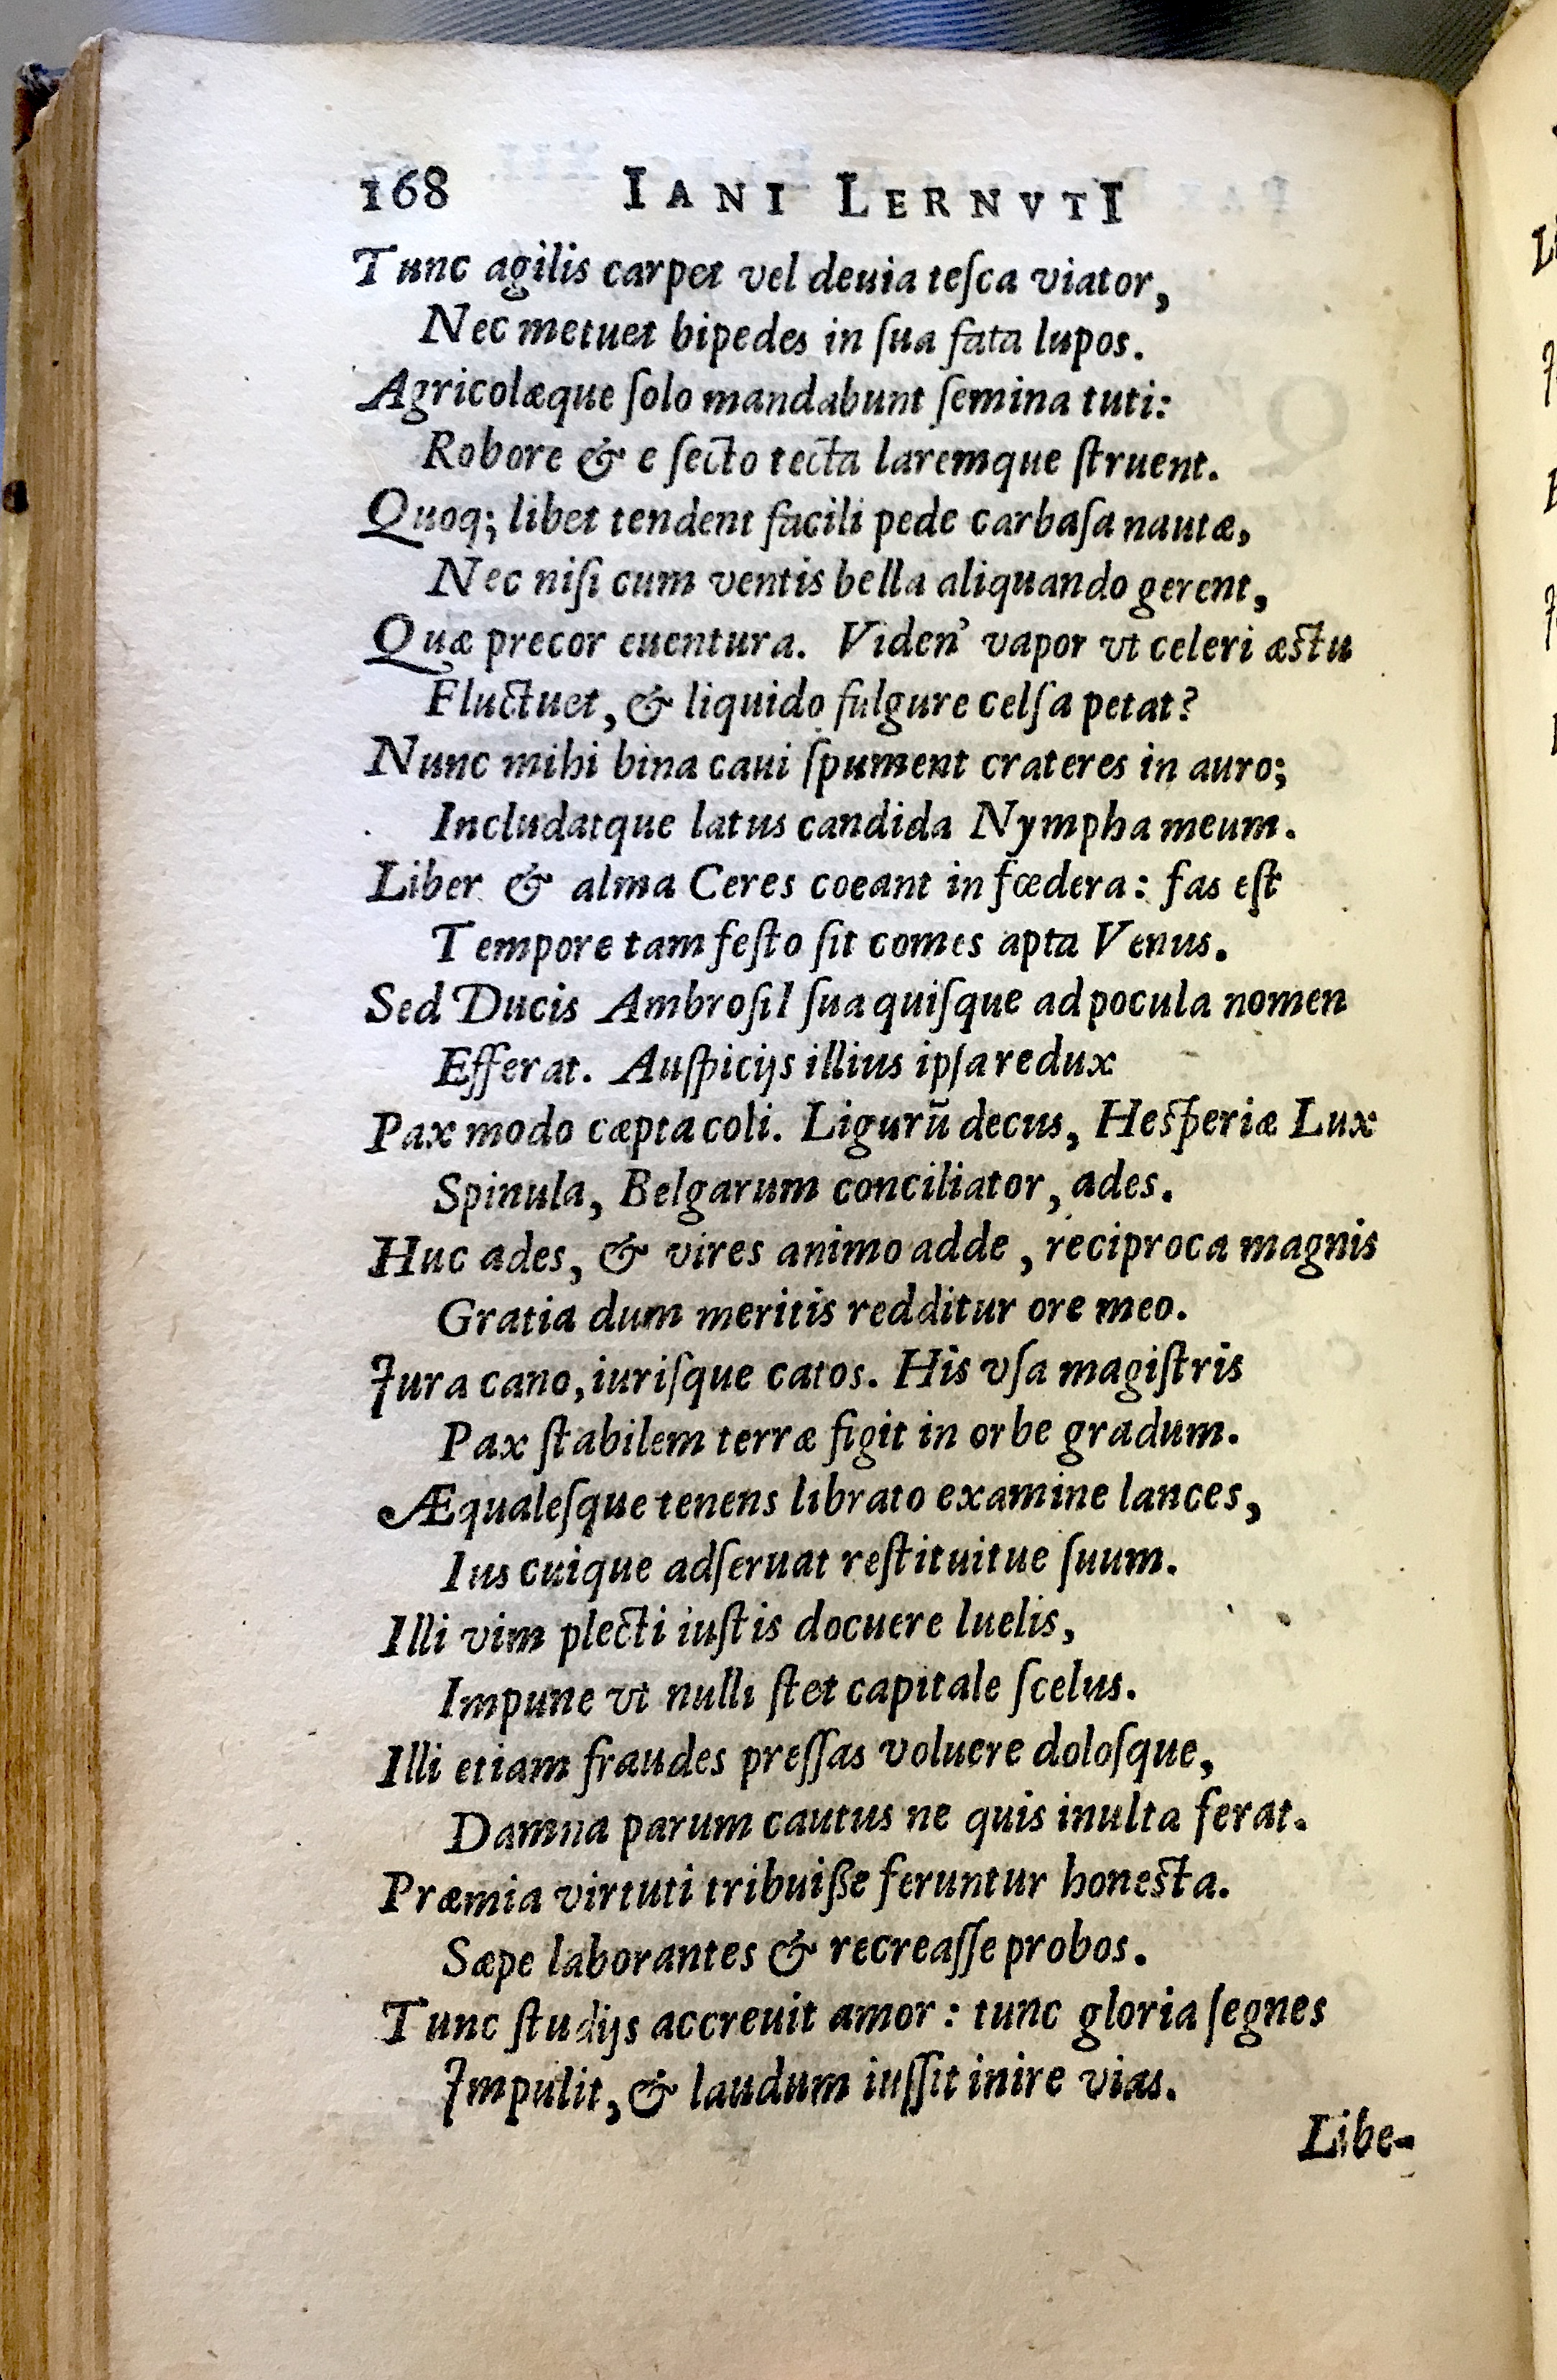 168 IANI LERNVTI
Tunc agilis carpet vel deuia teſca viator,
Nec metuet bipedes in ſua fata lupos.
Agricolæque ſolo mandabunt ſemina tuti:
Robore & e ſecto tecta laremque ſtruent.
Quoq; libet tendent facili pede carbaſa nautæ,
Nec niſi cum ventis bella aliquando gerent,
Quæ precor euentura. Viden' vapor vt celeri æstu
Fluctuet, & liquido fulgure celſa petat?
Nunc mihi bina caui ſpument crateres in auro;
Includatque latus candida Nympha meum.
Liber & alma Ceres coeant in fœdera: fas eſt
Tempore tam feſto ſit comes apta Venus.
Sed Ducis AmbroſiI ſua quiſque ad pocula nomen
Efferat. Auſpicijs illius ipſa redux
Pax modo cæpta coli. Ligurū decus, Hesperiæ Lux
Spinula, Belgarum conciliator, ades.
Huc ades, & vires animo adde, reciproca magnis
Gratia dum meritis redditur ore meo.
Iura cano, iuriſque catos. His vſa magiſtris
Pax ſtabilem terræ figit in orbe gradum.
Æqualeſque tenens librato examine lances,
Ius cuique adſeruat reſtituitue ſuum.
Illi vim plecti iuſtis docuere luelis,
Impune vt nulli ſtet capitale ſcelus.
Illi etiam fraudes preſſas voluere doloſque,
Damna parum cautus ne quis inulta ferat.
Præmia virtuti tribuiße feruntur honesta.
Sæpe laborantes & recreaſſe probos.
Tunc ſtudijs accreuit amor: tunc gloria ſegnes
Impulit, & laudum iuſſit inire vias.
Libe-